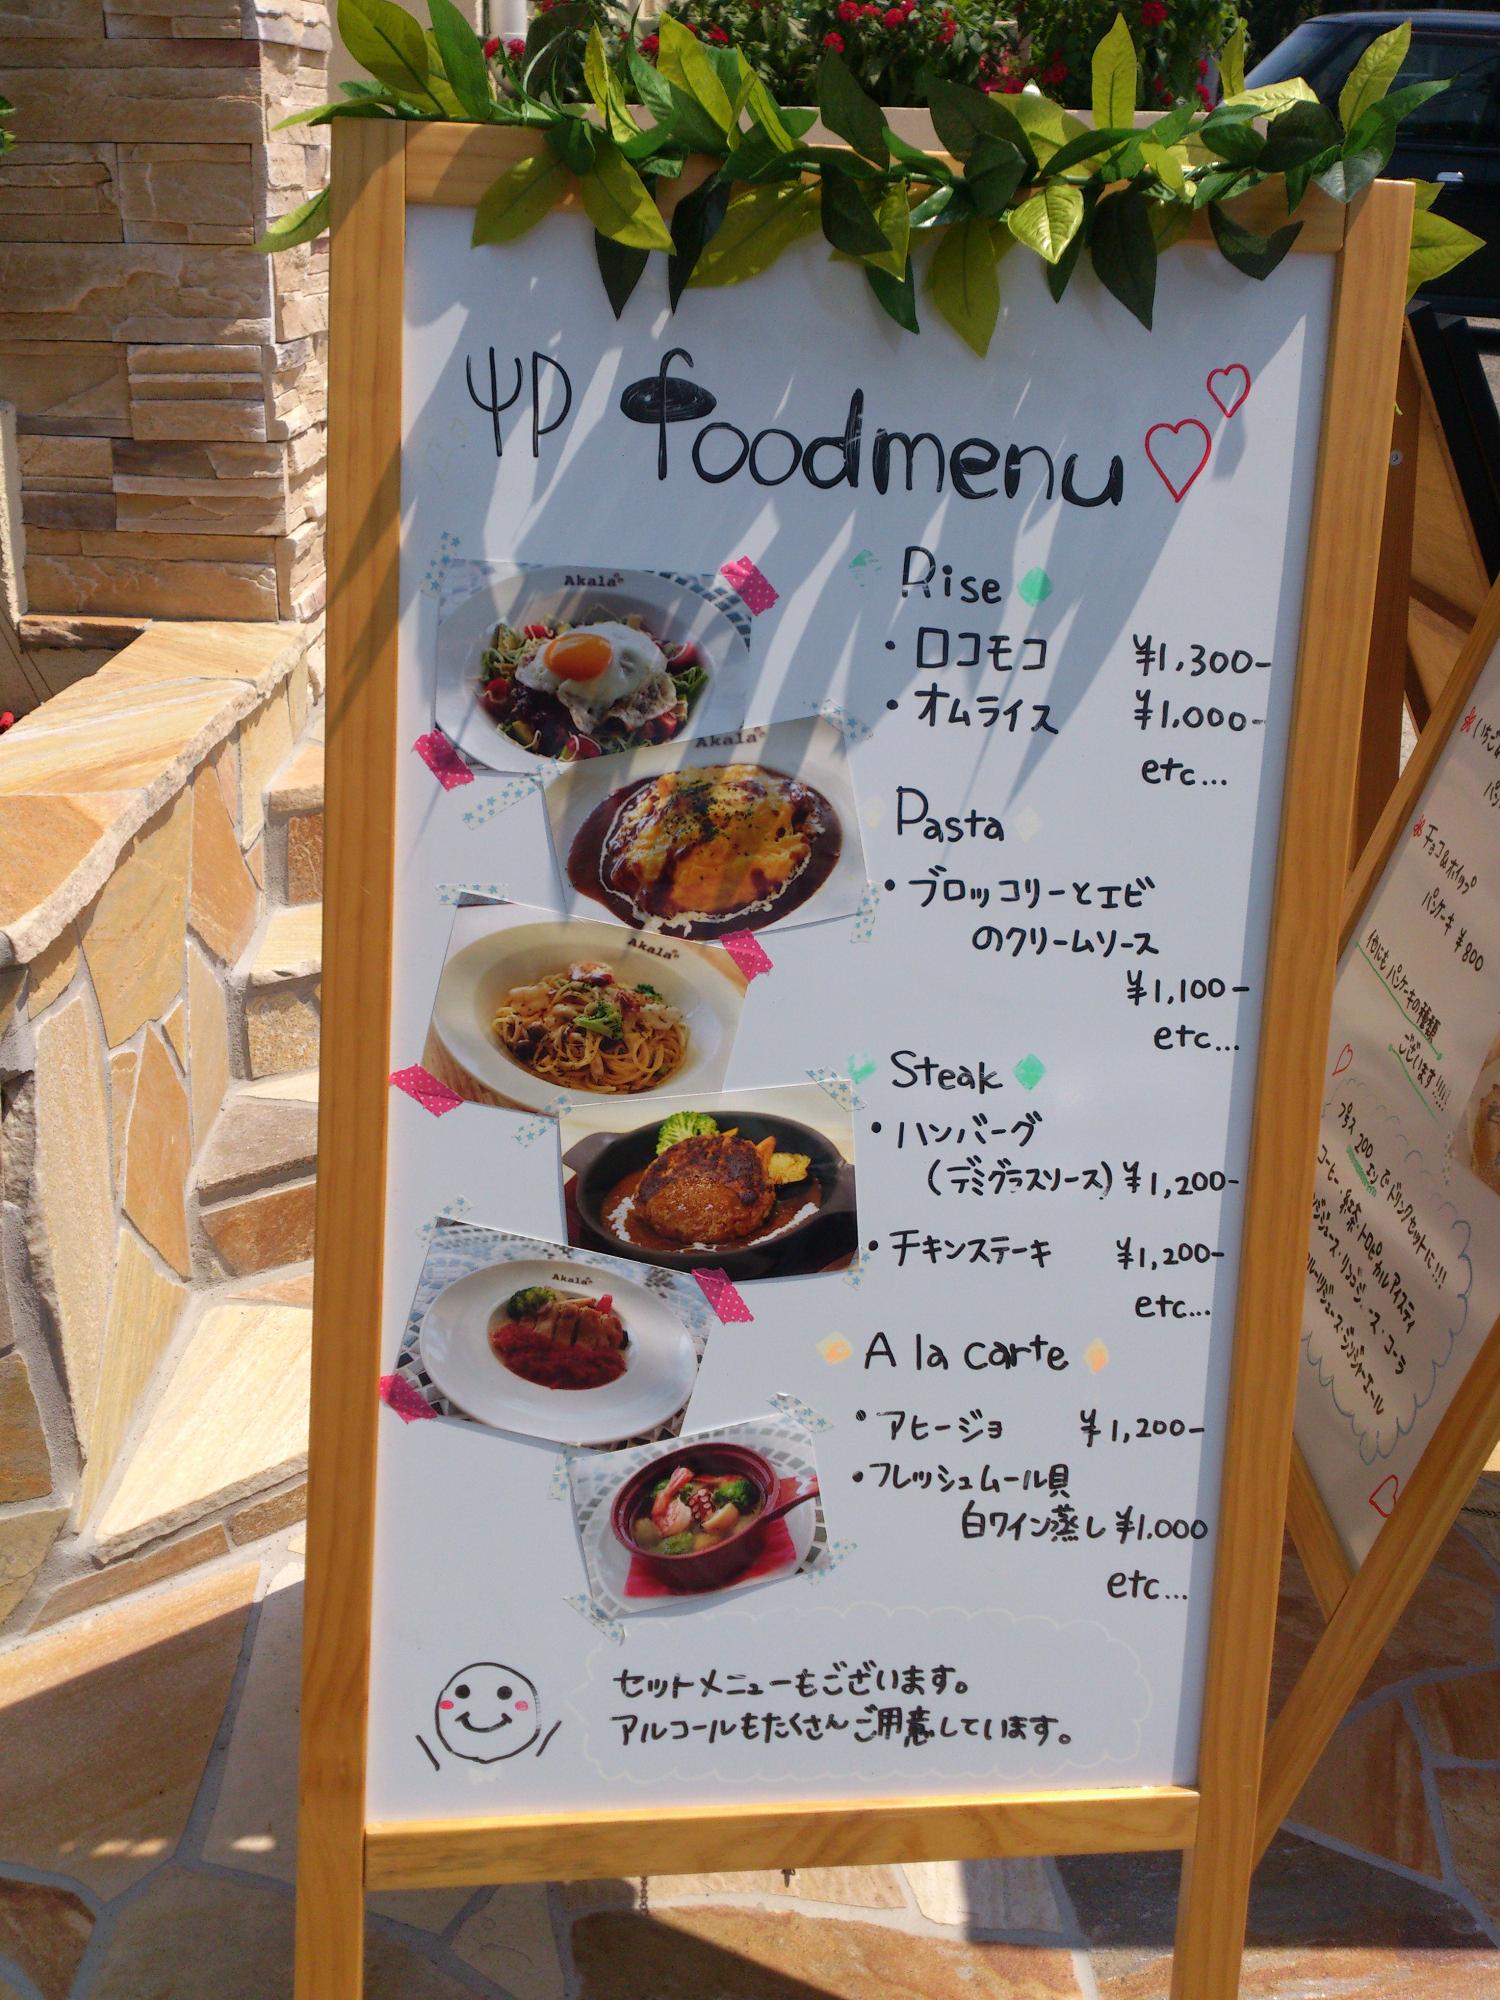 foodmenu
Akala
Rise
・ロコモコ ¥1,300-
・オムライス ¥1.000-
etc...
Akala
Pasta
・ブロッコリーとエビ
のクリームソース
¥1,100-
etc...
Akala
Steak
・ハンバーグ
(デミグラスソース) ¥1,200-
・チキンステーキ ¥1,200-
etc...
Akala
A la carte
・アヒージョ ¥1,200-
・フレッシュムール貝
白ワイン蒸し ¥1.000
etc...
セットメニューもございます。
アルコールもたくさんご用意しています。
チョコ&ホイップ
パンケーキ ¥800
他にもパンケーキの種類
ございます!!!
プラス200エンでドリンクセットに!!!
コーヒー・紅茶・トロピカルアイスティ
ジュース・リンゴジュース・コーラ
ジュース・ジンジャーエール